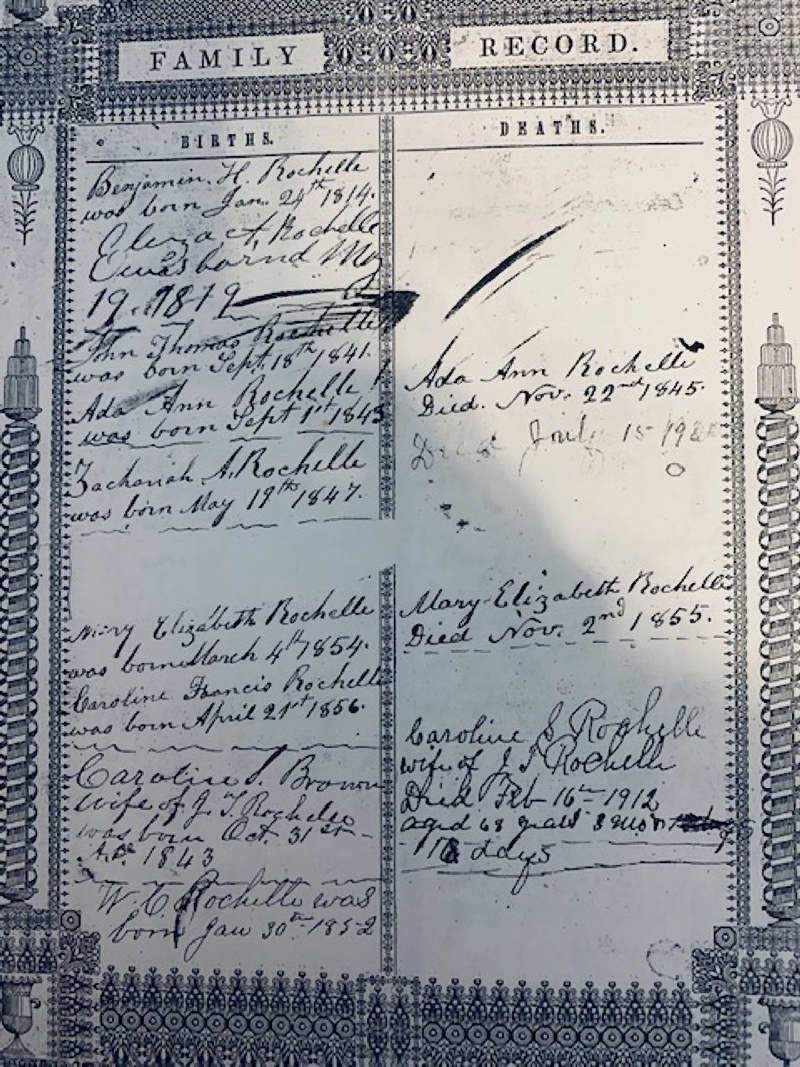 FAMILY RECORD.
BIRTHS.
Benjamin. H. Rochelle
was born Jan. 24th 1814.
Eliza A, Rochelle
was born d May
19. 1819
John Thomas Rochelle
was born Sept. 18th 1841.
Ada Ann Rochelle
was born Sept 1st 1843
Zachariah A. Rochelle
was born May 19th 1847.
Mary Elizabeth Rochelle
was born March 4th 1854.
Caroline Francis Rochelle
was born April 21st 1856.
Caroline S. Brown
wife of J. T. Rochelle
was born Oct. 31st
A.D. 1843
W. C. Rochelle was
born Jan 30th 1852
DEATHS.
Ada Ann Rochelle
Died. Nov. 22nd 1845.
July 15
Mary Elizabeth Rochelle
Died Nov. 2nd 1855.
Caroline S Rochelle
wife of J T Rochelle
Died Feb 16th 1912
aged 68 years 3 mon
16 days